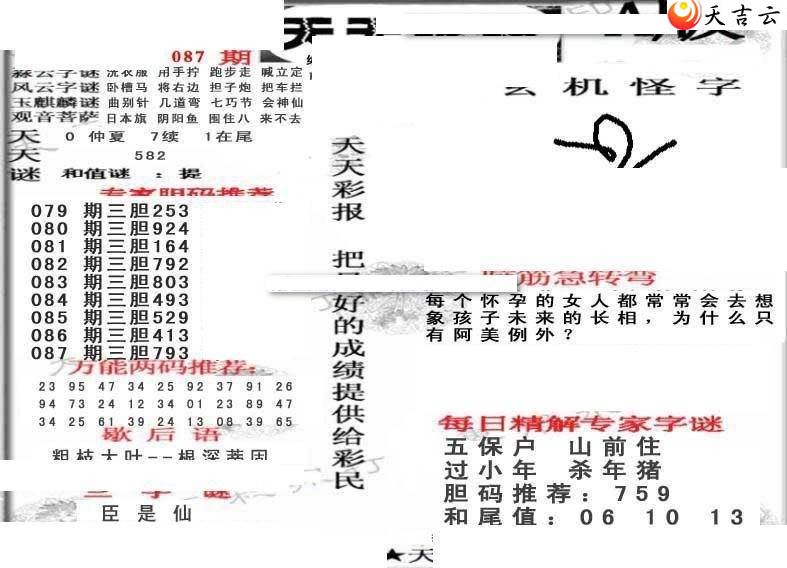 天吉云
087 期
淼云字谜 洗衣服 用手拧 跑步走 喊立定
风云字谜 卧槽马 将右边 担子炮 把车拦
玉麒麟谜 曲别针 几道弯 七巧节 会神仙
观音菩萨 日本旗 阴阳鱼 围住八 来不去
天 0 仲夏 7续 1在尾
天 582
谜 和值谜 ：提
专家胆码推荐
079 期三胆253
080 期三胆924
081 期三胆164
082 期三胆792
083 期三胆803
084 期三胆493
085 期三胆529
086 期三胆413
087 期三胆793
万能两码推荐:
23 95 47 34 25 92 37 91 26
94 73 24 12 34 01 23 89 47
34 25 61 39 24 13 08 39 65
歇后语
粗枝大叶--根深蒂固
三字谜
臣是仙
天天彩报 把 好的成绩提供给彩民
云机怪字
脑筋急转弯
每个怀孕的女人都常常会去想
象孩子未来的长相，为什么只
有阿美例外？
每日精解专家字谜
五保户 山前住
过小年 杀年猪
胆码推荐：759
和尾值：06 10 13
★天